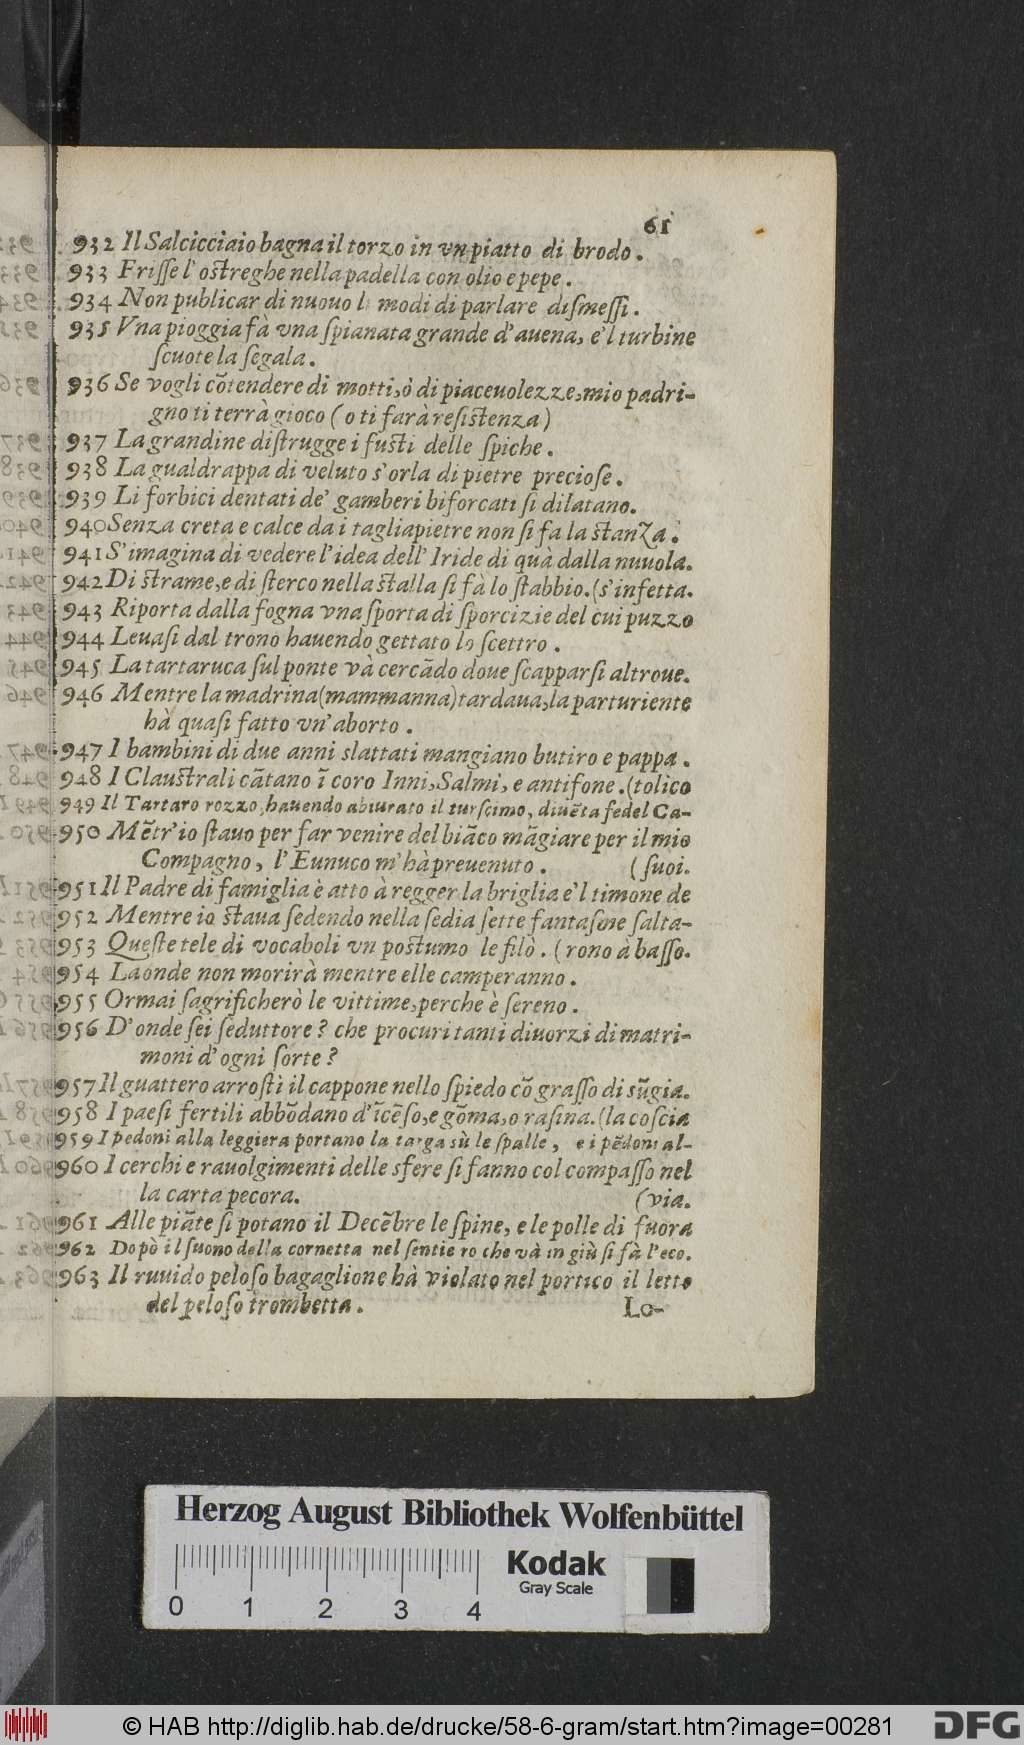 61
932 Il Salcicciaio bagna il torzo in vn piatto di brodo.
933 Frisse l'ostreghe nella padella con olio e pepe.
934 Non publicar di nuouo li modi di parlare dismessi.
935 Vna pioggia fà vna spianata grande d'auena, e'l turbine
scuote la segala.
936 Se vogli cõtendere di motti, ò di piaceuolezze, mio padri-
gno ti terrà gioco (o ti farà resistenza)
937 La grandine distrugge i fusti delle spiche.
938 La gualdrappa di veluto s'orla di pietre preciose.
939 Li forbici dentati de' gamberi biforcati si dilatano.
940 Senza creta e calce da i tagliapietre non si fa la stanza.
941 S'imagina di vedere l'idea dell'Iride di quà dalla nuuola.
942 Di strame, e di sterco nella stalla si fà lo stabbio. (s'infetta.
943 Riporta dalla fogna vna sporta di sporcizie del cui puzzo
944 Leuasi dal trono hauendo gettato lo scettro.
945 La tartaruca sul ponte và cercãdo doue scapparsi altroue.
946 Mentre la madrina (mammanna) tardaua, la parturiente
hà quasi fatto vn'aborto.
947 I bambini di due anni slattati mangiano butiro e pappa.
948 I Claustrali cãtano ĩ coro Inni, Salmi, e antifone. (tolico
949 Il Tartaro rozzo, hauendo abiurato il turscimo, diuẽta fedel Ca-
950 Mẽtr'io stauo per far venire del biãco mãgiare per il mio
Compagno, l'Eunuco m'hà preuenuto. (suoi.
951 Il Padre di famiglia è atto à regger la briglia e'l timone de
952 Mentre io staua sedendo nella sedia sette fantasme salta-
953 Queste tele di vocaboli vn postumo le filò. (rono à basso.
954 Laonde non morirà mentre elle camperanno.
955 Ormai sagrificherò le vittime, perche è sereno.
956 D'onde sei seduttore? che procuri tanti diuorzi di matri-
moni d'ogni sorte?
957 Il guattero arrostì il cappone nello spiedo cõ grasso di sũgia.
958 I paesi fertili abbõdano d'ĩcẽso, e gõma, o rasina. (la coscia
959 I pedoni alla leggiera portano la targa sù le spalle, e i pẽdoni al-
960 I cerchi e rauolgimenti delle sfere si fanno col compasso nel
la carta pecora. (via.
961 Alle piãte si potano il Decẽbre le spine, e le polle di fuora
962 Dopò il suono della cornetta nel sentiero che và in giù si fà l'eco.
963 Il ruuido peloso bagaglione hà violato nel portico il letto
del peloso trombetta.
Lo-
Herzog August Bibliothek Wolfenbüttel
Kodak
Gray Scale
0 1 2 3 4
© HAB http://diglib.hab.de/drucke/58-6-gram/start.htm?image=00281
DFG